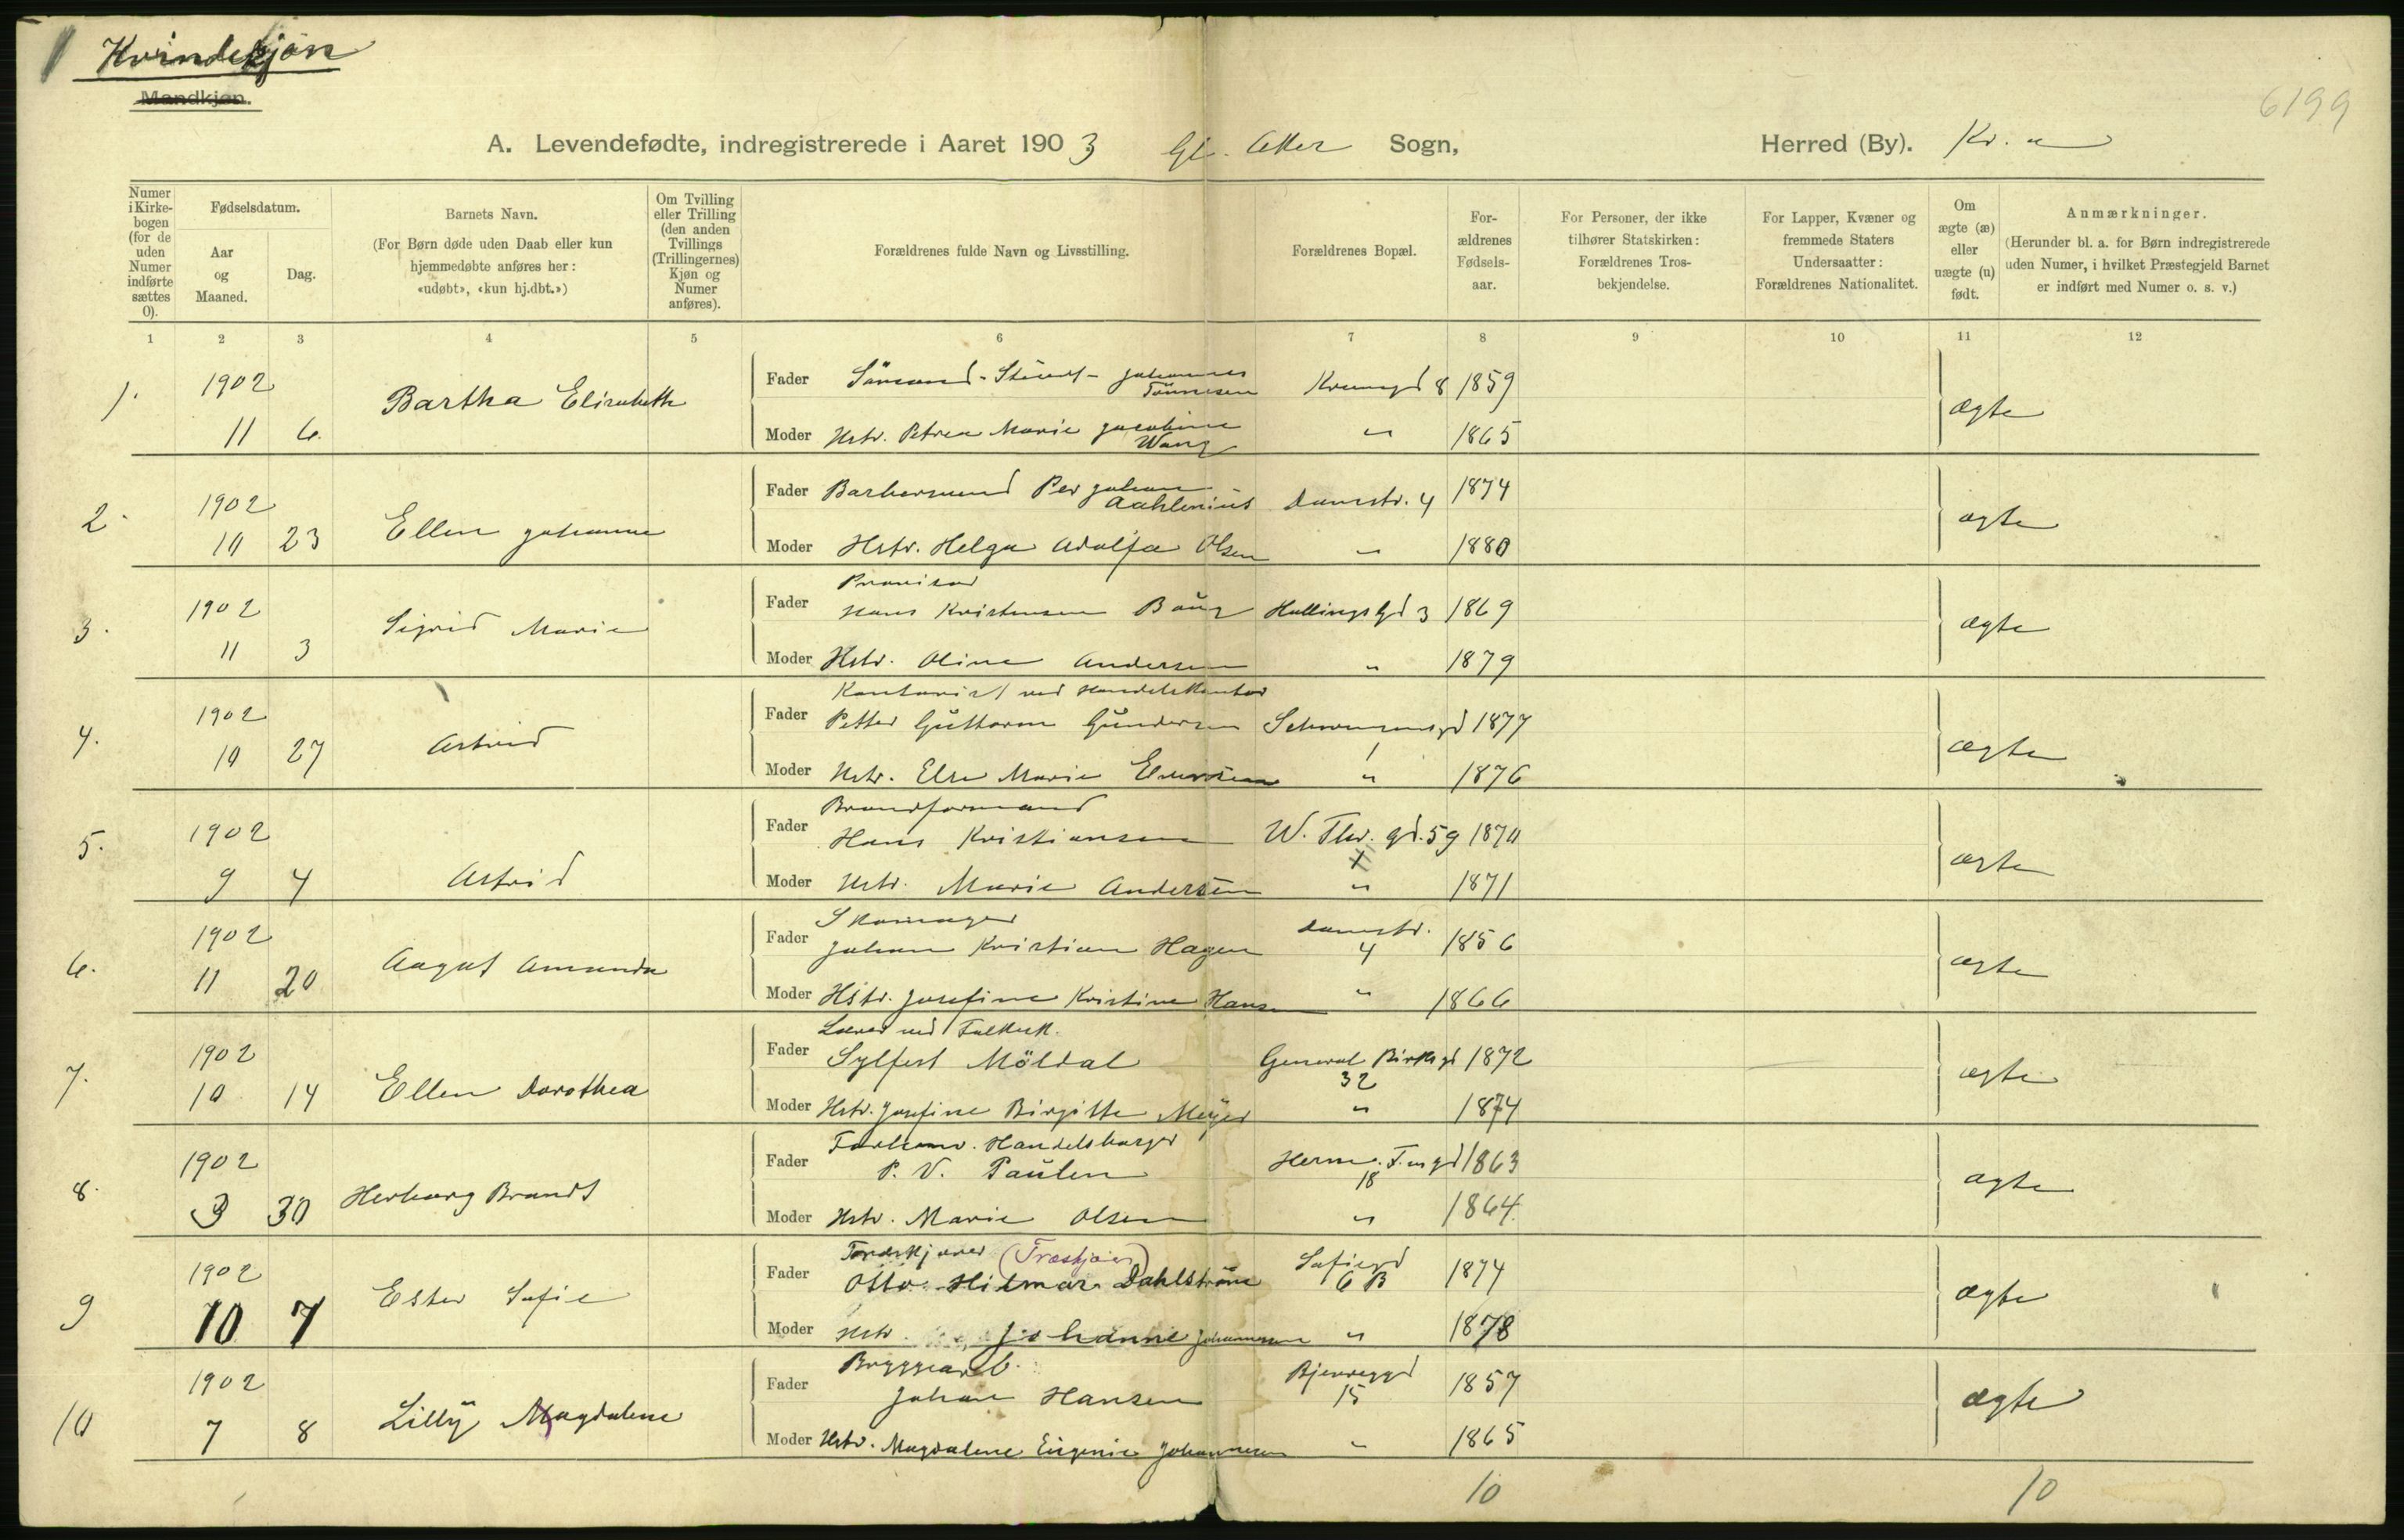 Kvindekjøn
Mandkjøn.
6199
A. Levendefødte, indregistrerede i Aaret 1903 Gl. Aker Sogn, Herred (By). Kr. a
Numer i Kirkebogen (for de uden Numer indførte sættes 0).
Fødselsdatum.
Aar og Maaned.
Dag.
Barnets Navn.
(For Børn døde uden Daab eller kun hjemmedøbte anføres her: «udøbt», «kun hj.dbt.»)
Om Tvilling eller Trilling (den anden Tvillings (Trillingernes) Kjøn og Numer anføres).
Forældrenes fulde Navn og Livsstilling.
Forældrenes Bopæl.
For-ældrenes Fødsels-aar.
For Personer, der ikke tilhører Statskirken: Forældrenes Tros-bekjendelse.
For Lapper, Kvæner og fremmede Staters Undersaatter: Forældrenes Nationalitet.
Om ægte (æ) eller uægte (u) født.
Anmærkninger.
(Herunder bl. a. for Børn indregistrerede uden Numer, i hvilket Præstegjeld Barnet er indført med Numer o. s. v.)
1 2 3 4 5 6 7 8 9 10 11 12
1. 1902 11 6 Bartha Elisabeth
Fader Johannes Tönnesen 8 1859
ægte
Moder Hstr. Petrea Marie Jacobine Wang " 1865
2. 1902 10 23 Ellen Johanne
Fader Per Johan Aahlenius Damstr. 4 1874
ægte
Moder Hstr. Helga Adolfa Olsen " 1880
3. 1902 11 3 Sigrid Marie
Provisor
Fader Hans Kristensen 3 1869
ægte
Moder Hstr. Oline Andersen " 1879
4. 1902 10 27 Astrid
Kontorist ved Handelskontor
Fader Petter Guttorm Gundersen Schwensensgd 1 1877
ægte
Moder Hstr. Else Marie " 1876
5. 1902 9 4 Astrid
Brandformand
Fader Hans Kristiansen W. Thr. gd. 59 1870
ægte
Moder Hstr. Marie Andersen " 1871
6. 1902 11 20 Aagot Amanda
Skomager
Fader Johan Kristian Hagen Damstr. 4 1856
ægte
Moder Hstr. Josefine Kristine Hansen " 1866
7. 1902 10 14 Ellen Dorothea
Lærer ved Folkesk.
Fader Sylfest Möldal General Birchs gd 32 1872
ægte
Moder Hstr. Josefine Birgitte Meyer " 1874
8. 1902 3 30 Herborg Brandt
Forhenv. Handelsborger
Fader P. V. Paulen 18 1863
ægte
Moder Hstr. Marie Olsen " 1864
9 1902 10 7 Ester Sofie
Fader Otto Hilmar Dahlström Sofiegd 6 B 1874
ægte
Moder Hstr. Johanne Johannesen " 1878
10 1902 7 8 Lilly Magdalene
Bryggearb.
Fader Johan Hansen Bjerregd 15 1857
ægte
Moder Hstr. Magdalene Eugenie Johannesen " 1865
10 10